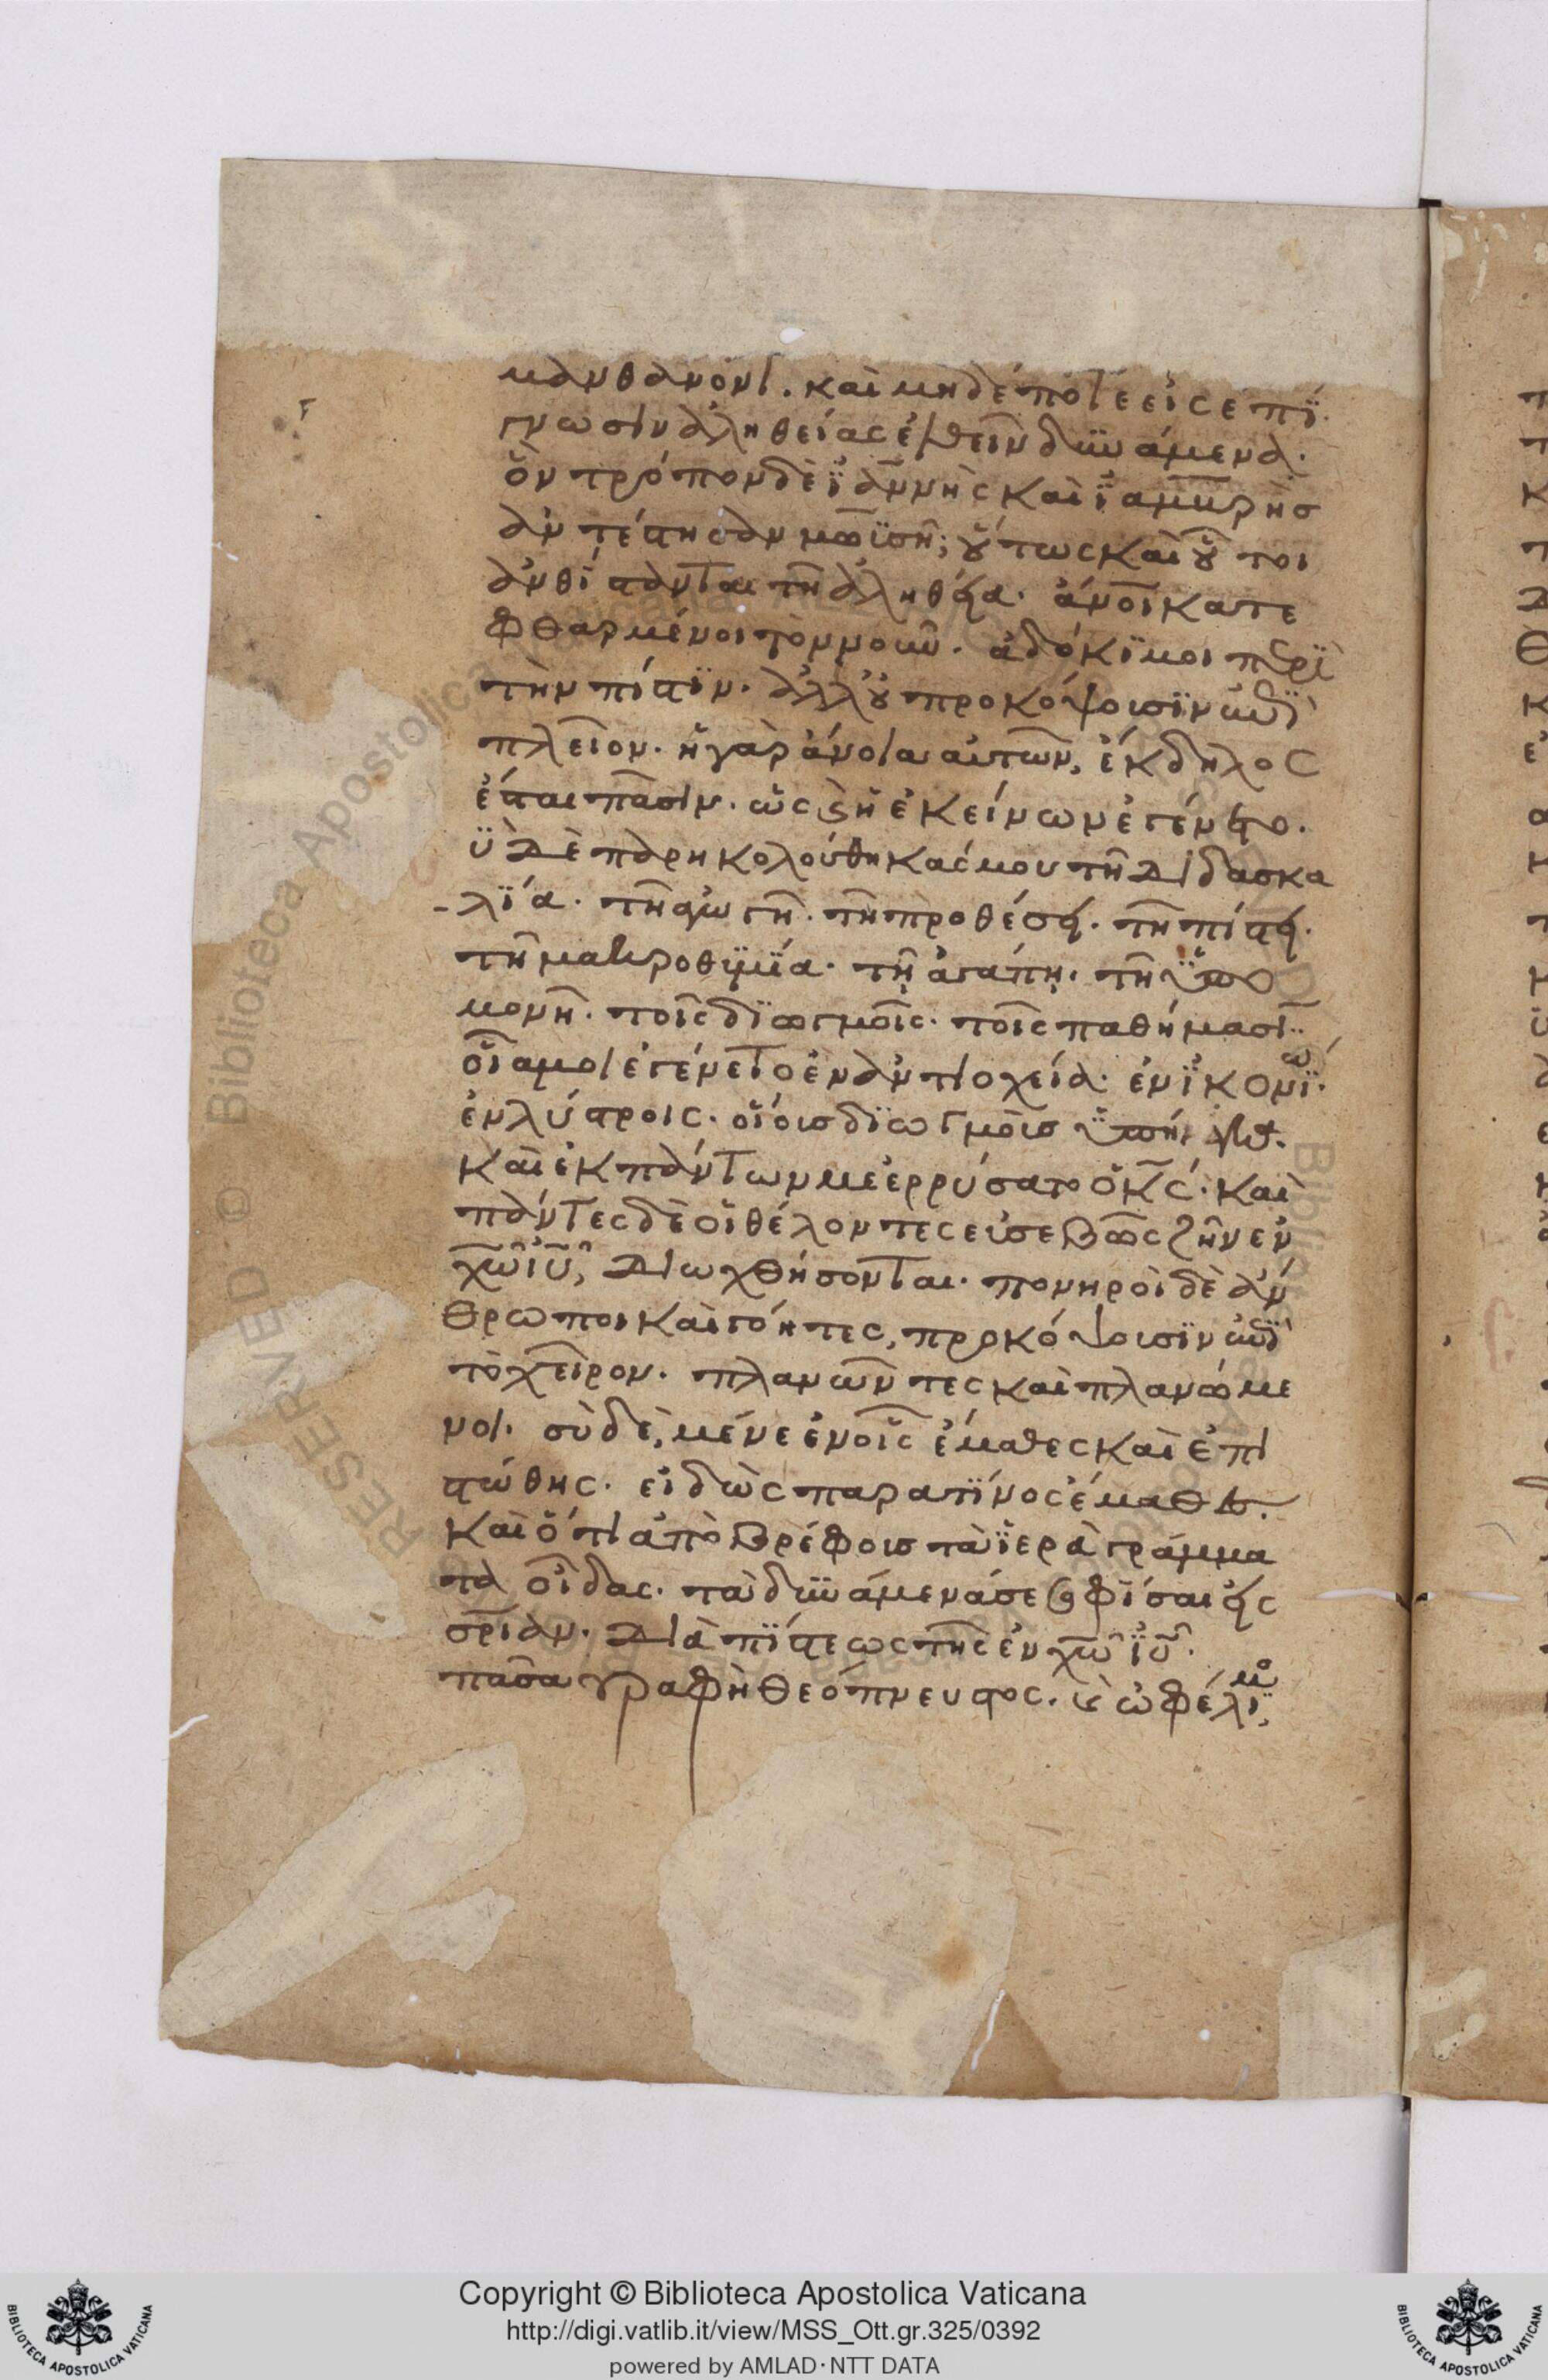 μανθάνοντ. καὶ μηδέποτε εἰς ἐπΐ
γνωσιν ἀληθείας ἐλθεῖν δυνάμενα.
ὃν τρόπον δὲ ἰαννῆς καὶ ἰαμβρῆσ
ἀντέστησαν μωϋσῆ; οὕτως καὶ οὗτοι
ἀνθίστανται τῆ ἀληθεία. ἄνοι κατε
φθαρμένοι τὸν νοῦν. ἀδόκϊμοι περὶ
τὴν πίστϊν. ἀλλ' οὐ προκόψουσϊν ἐπὶ
πλεῖον. ἡ γὰρ ἄνοια αὐτῶν, ἔκδηλος
ἔσται πᾶσιν. ὡς καὶ ἡ ἐκείνων ἐγένετο.
ὺ δὲ παρηκολούθηκας μου τῆ διδασκα
λΐα. τῆ ἀγωγῆ. τῆ προθέσει. τῆ πίστει.
τῆ μακροθυμΐα. τῆ ἀγάπη. τῆ ὑπο
μονῆ. τοῖς διωγμοῖς. τοῖς παθήμασϊ.
οἷα μοι ἐγένετο ἐν ἀντιοχεία. ἐν ἰκονϊω.
ἐν λύστροις. οἵουσ διωγμοὺσ ὑπήνεγκα.
καὶ ἐκ πάντων με ἐρρύσατο ὁ κς. καὶ
πάντες δὲ οἱ θέλοντες εὐσεβῶς ζῆν ἐν
χω ιυ, διωχθήσονται. πονηροὶ δὲ ἄν
θρωποι καὶ γόητες, προκόψουσϊν ἐπὶ
τὸ χεῖρον. πλανῶντες καὶ πλανώμε
νοι. σὺ δὲ, μένε ἐν οἷς ἔμαθες καὶ ἐπι
στώθης. εἰδὼς παρὰ τΐνος ἔμαθες.
καὶ ὅτι ἀπὸ βρέφουσ τὰ ἱερὰ γράμμα
τα οἶδας. τὰ δυνάμενά σε σοφΐσαι εἰς
σρίαν. διὰ πΐστεως τῆς ἐν χω ιυ.
πᾶσα γραφὴ θεόπνευστος. καὶ ὠφέλϊμο,
Copyright © Biblioteca Apostolica Vaticana
http://digi.vatlib.it/view/MSS_Ott.gr.325/0392
powered by AMLAD·NTT DATA